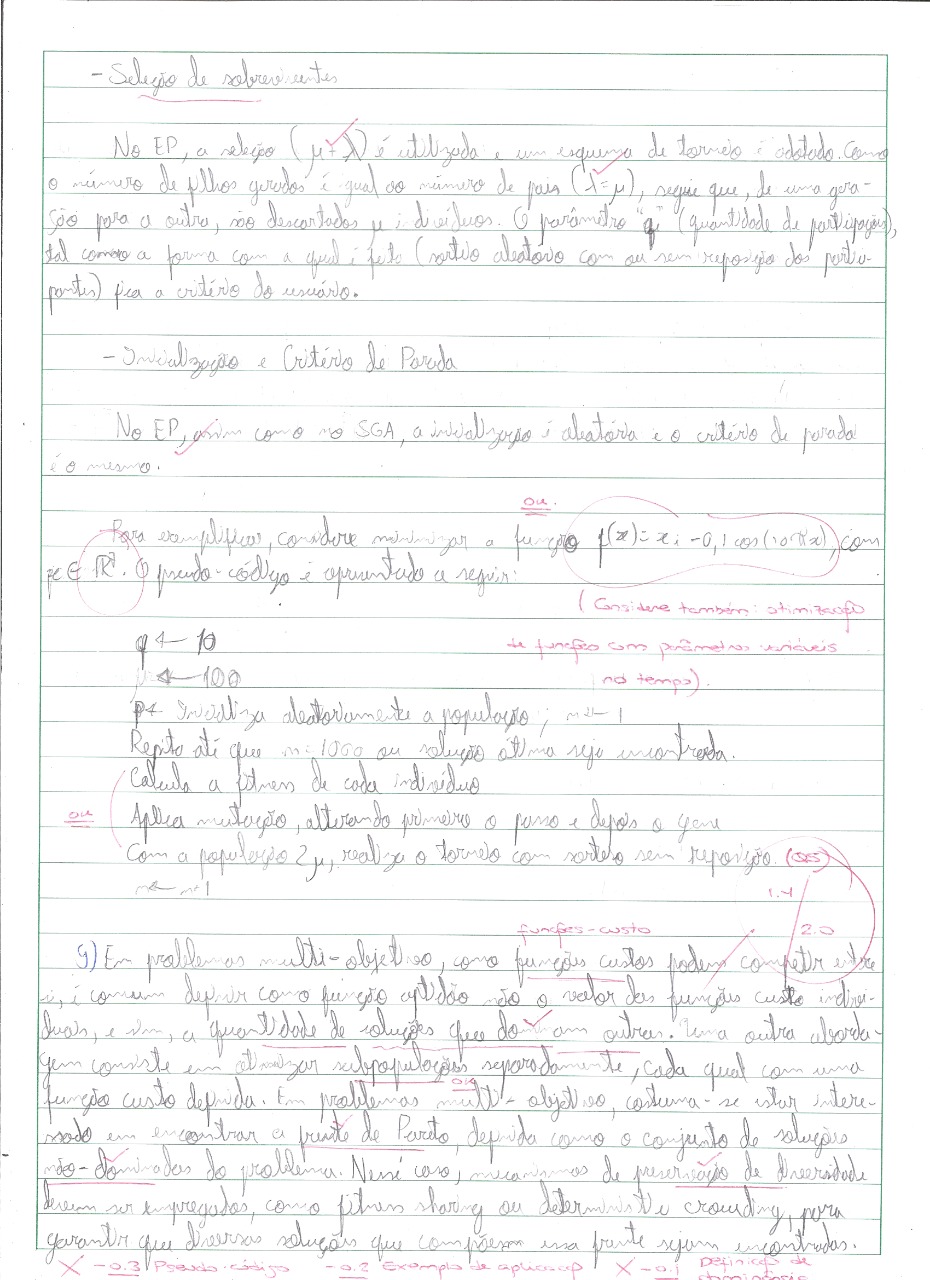 - Seleção de sobreviventes
No EP, a seleção (μ + λ) é utilizada e um esquema de torneio é adotado. Como
o número de filhos gerados é igual ao número de pais (λ=μ), segue que, de uma gera-
ção para a outra, são descartados μ indivíduos. O parâmetro "q" (quantidade de participações),
tal como a forma com a qual é feito (sorteio aleatório com ou sem reposição dos partici-
pantes) fica a critério do usuário.
- Inicialização e Critério de Parada
No EP, assim como no SGA, a inicialização é aleatória e o critério de parada
é o mesmo.
ou
Para exemplificar, considere minimizar a função f(x) = xi - 0,1 cos(10πx), com
x ∈ ℝ. O pseudo-código é apresentado a seguir:
(Considere também: otimização
de funções com parâmetros variáveis
no tempo).
q ← 10
μ ← 100
P ← Inicializa aleatoriamente a população; n ← 1
Repita até que n=1000 ou solução ótima seja encontrada.
Calcula a fitness de cada indivíduo
ou
Aplica mutação, alterando primeiro o passo e depois o gene
Com a população 2μ, realiza o torneio com sorteio sem reposição.
n ← n+1
1.4 / 2.0
funções-custo
g) Em problemas multi-objetivo, como funções custos podem competir entre
si, é comum definir como função aptidão não o valor das funções custo indivi-
duais, e sim, a quantidade de soluções que dominam outras. Uma outra aborda-
gem consiste em otimizar subpopulações separadamente, cada qual com uma
função custo definida. Em problemas multi-objetivo, costuma-se estar interes-
sado em encontrar a frente de Pareto, definida como o conjunto de soluções
não-dominadas do problema. Nesse caso, mecanismos de preservação de diversidade
devem ser empregados, como fitness sharing ou deterministic crowding, para
garantir que diversas soluções que compõem essa frente sejam encontradas.
X -0.3 Pseudo-código -0.2 Exemplo de aplicação X -0.1 Definição de
dominância